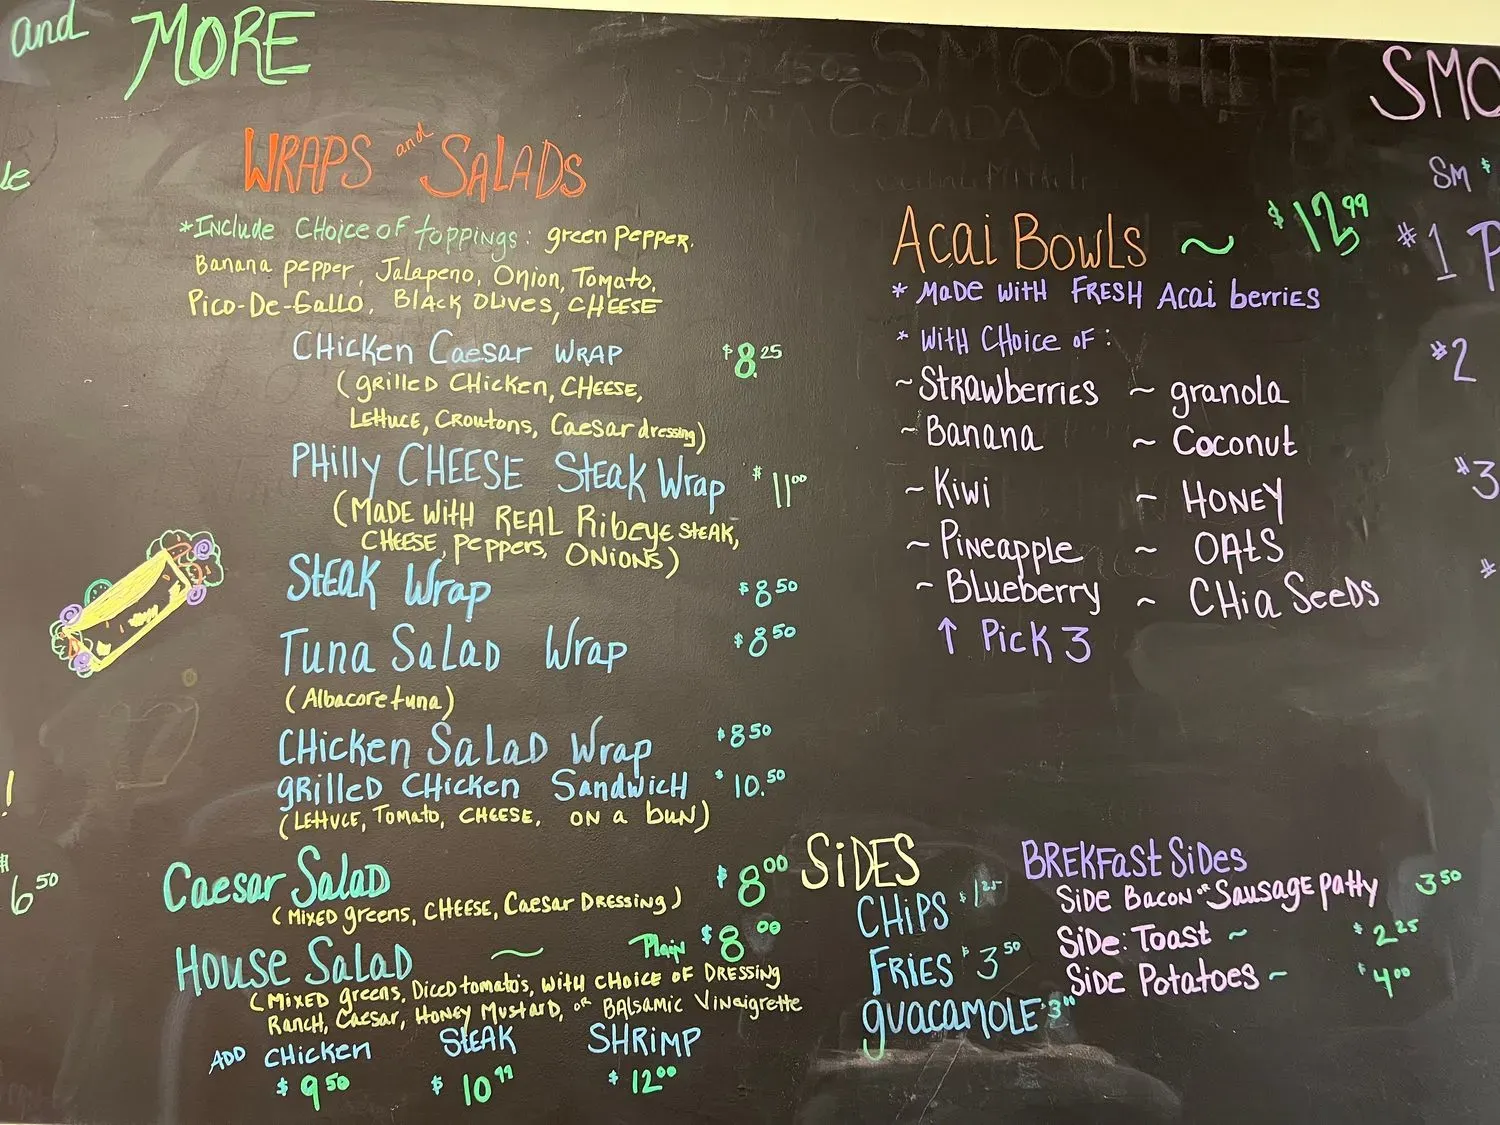 and MORE
WRAPS and SALADS
*Include CHOICE OF toppings: green Pepper,
Banana pepper, Jalapeno, Onion, Tomato,
Pico-De-Gallo, Black OLIVES, CHEESE
CHicken Caesar WRAP $8.25
(grilled CHicken, CHEESE,
Lettuce, Croutons, Caesar dressing)
PHilly CHEESE Steak Wrap $11.00
(Made with REAL Ribeye steak,
CHEESE, peppers, ONIONS)
STEAK Wrap $8.50
Tuna Salad Wrap $8.50
(Albacore tuna)
CHicken Salad Wrap $8.50
grilled CHicken Sandwich $10.50
(Lettuce, Tomato, CHEESE, ON a bun)
Caesar Salad $8.00
(Mixed greens, CHEESE, Caesar DRESSING)
House Salad ~ Plain $8.00
(Mixed greens, Diced tomatos, with CHOICE OF DRESSING
Ranch, Caesar, Honey Mustard, or Balsamic Vinaigrette
ADD CHicken STEAK SHRIMP
$9.50 $10.99 $12.00
6.50
Acai Bowls ~ $12.99
* Made with FRESH Acai berries
* With CHoice of:
~ Strawberries ~ granola
~ Banana ~ Coconut
~ Kiwi ~ HONEY
~ Pineapple ~ OATS
~ Blueberry ~ CHia Seeds
↑ Pick 3
SIDES
CHIPS $1.25
FRIES $3.50
guacamole
BREKFast Sides
Side Bacon or Sausage patty 3.50
Side: Toast ~ $2.25
Side Potatoes ~ $4.00
SMO
SM $
#1 P
#2
#3
#